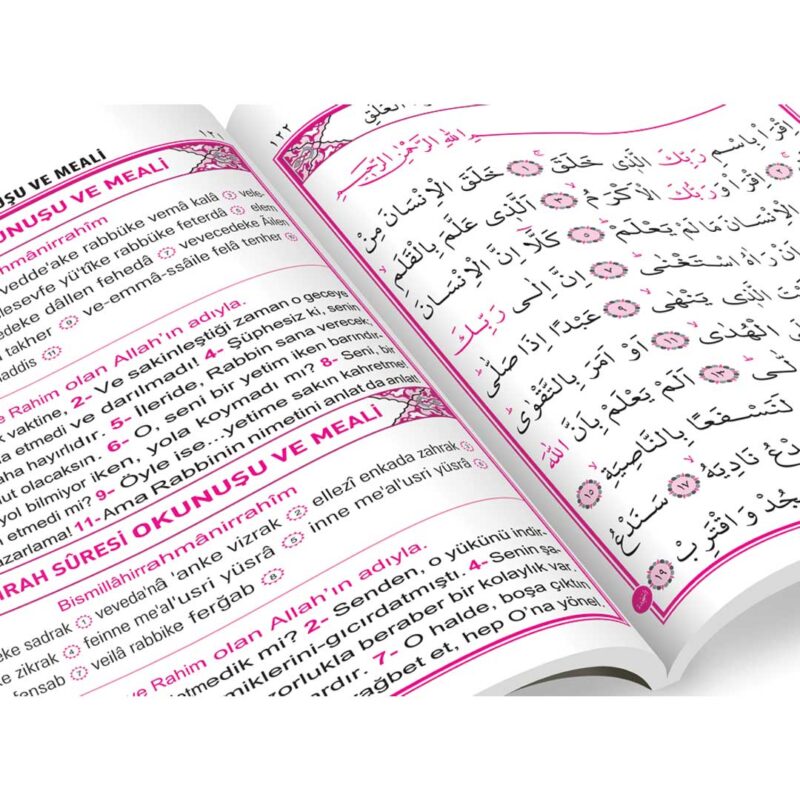 ١٢١
UŞU VE MEALİ
UNUŞU VE MEALİ
hmânirrahîm
vedde'ake rabbüke vemâ kalâ ٣ vele-
lesevfe yü'tîke rabbüke feterdâ ٥ elem
edeke dâllen fehedâ ٧ vevecedeke Âilen
takher ٩ ve-emma-ssâile felâ tenher ١٠
addis ١١
e Rahim olan Allah'ın adıyla.
k vaktine, 2- Ve sakinleştiği zaman o geceye
a etmedi ve darılmadı! 4- Şüphesiz ki, senin
aha hayırlıdır. 5- İleride, Rabbin sana verecek,
ut olacaksın. 6- O, seni bir yetim iken barındır-
yol bilmiyor iken, yola koymadı mı? 8- Seni, bir
etmedi mi? 9- Öyle ise...yetime sakın kahretme!
azarlama! 11-Ama Rabbinin nimetini anlat da anlat!
İRAH SÛRESİ OKUNUŞU VE MEALİ
Bismillâhirrahmânirrahîm
eke sadrak ١ veveda'nâ 'anke vizrak ٢ ellezî enkada zahrak ٣
ke zikrak ٤ feinne me'al'usri yüsrâ ٥ inne me'al'usri yüsrâ ٦
fensab ٧ veilâ rabbike ferğab ٨
ve Rahim olan Allah'ın adıyla.
etmedik mi? 2- Senden, o yükünü indir-
miklerini-gıcırdatmıştı. 4-Senin şa-
zorlukla beraber bir kolaylık var.
ardır. 7- O halde, boşa çıktın
ağbet et, hep O'na yönel.
١٢٢
الْعَلَقِ
اللهِ الرَّحْمٰنِ الرَّحِيمِ
اِقْرَاْ بِاسْمِ رَبِّكَ الَّذِى خَلَقَ ١ خَلَقَ الْاِنْسَانَ مِنْ
٢ اِقْرَاْ وَرَبُّكَ الْاَكْرَمُ ٣ اَلَّذِى عَلَّمَ بِالْقَلَمِ
الْاِنْسَانَ مَا لَمْ يَعْلَمْ ٥ كَلَّا اِنَّ الْاِنْسَانَ
اَنْ رَاٰهُ اسْتَغْنٰى ٧ اِنَّ اِلٰى رَبِّكَ
تَ الَّذِى يَنْهٰى ٩ عَبْدًا اِذَا صَلّٰى
ى الْهُدٰى ١١ اَوْ اَمَرَ بِالتَّقْوٰى
لّٰى ١٣ اَلَمْ يَعْلَمْ بِاَنَّ اللهَ
لَنَسْفَعًا بِالنَّاصِيَةِ ١٥
دْعُ نَادِيَهُ ١٧ سَنَدْعُ
جُدْ وَاقْتَرِبْ ١٩